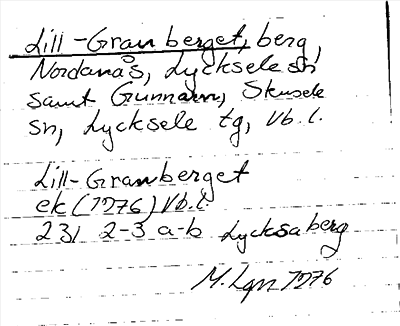 Lill-Granberget, berg,
Nordanås, Lycksele sn
samt Gunnarn, Stensele
sn, Lycksele tg, Vb.l.
Lill-Granberget
ek (1976) Vb.l.
23I 2-3 a-b Lycksaberg
M. Lgn 1976